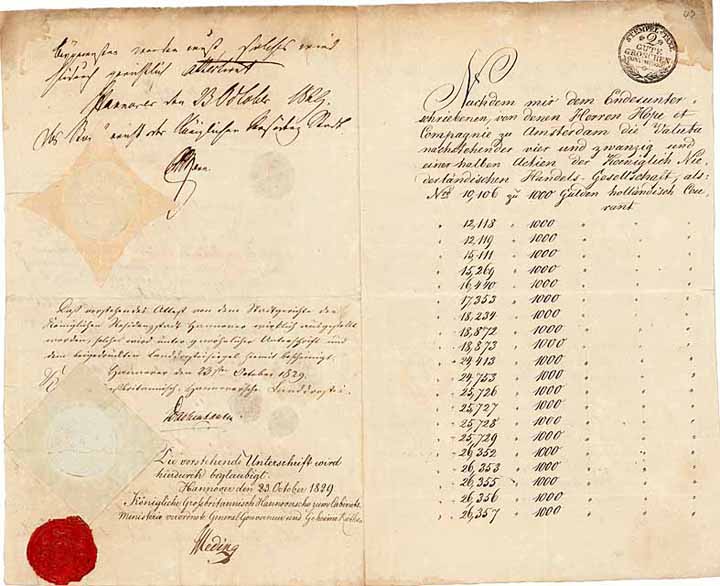 Hannover den 23 October 1829.
Daß vorstehendes Attest von dem Stadtgerichte der
Königlichen Residenzstadt Hannover wirklich ausgestellt
worden, solches wird unter gewöhnlicher Unterschrift und
dem beigedrückten Landdrosteisiegel hiemit bescheinigt.
Hannover den 23sten October 1829.
Großbritannisch-Hannoversche Landdrostei.
Die vorstehende Unterschrift wird
hiedurch beglaubigt.
Hannover den 23 October 1829
Königliche Großbritannisch Hannoversche zum Cabinets
Ministerio verordnete General Gouverneur und Geheime Räthe
Meding
STEMPEL TAXE
2
GUTE
GROSCHEN
Nachdem mir dem Endesunter
schriebenen, von denen Herren Hope et
Compagnie zu Amsterdam die Valuta
nachstehender vier und zwanzig und
einer halben Actien der Königlich Nie
derländischen Handels-Gesellschaft, als:
Nro 10,106 zu 1000 Gulden holländisch Cou
rant
" 12,118 " 1000 " " "
" 12,119 " 1000 " " "
" 15,111 " 1000 " " "
" 15,269 " 1000 " " "
" 16,440 " 1000 " " "
" 17,353 " 1000 " " "
" 18,234 " 1000 " " "
" 18,872 " 1000 " " "
" 18,873 " 1000 " " "
" 24,413 " 1000 " " "
" 24,753 " 1000 " " "
" 25,726 " 1000 " " "
" 25,727 " 1000 " " "
" 25,728 " 1000 " " "
" 25,729 " 1000 " " "
" 26,352 " 1000 " " "
" 26,353 " 1000 " " "
" 26,355 " 1000 " " "
" 26,356 " 1000 " " "
" 26,357 " 1000 " " "